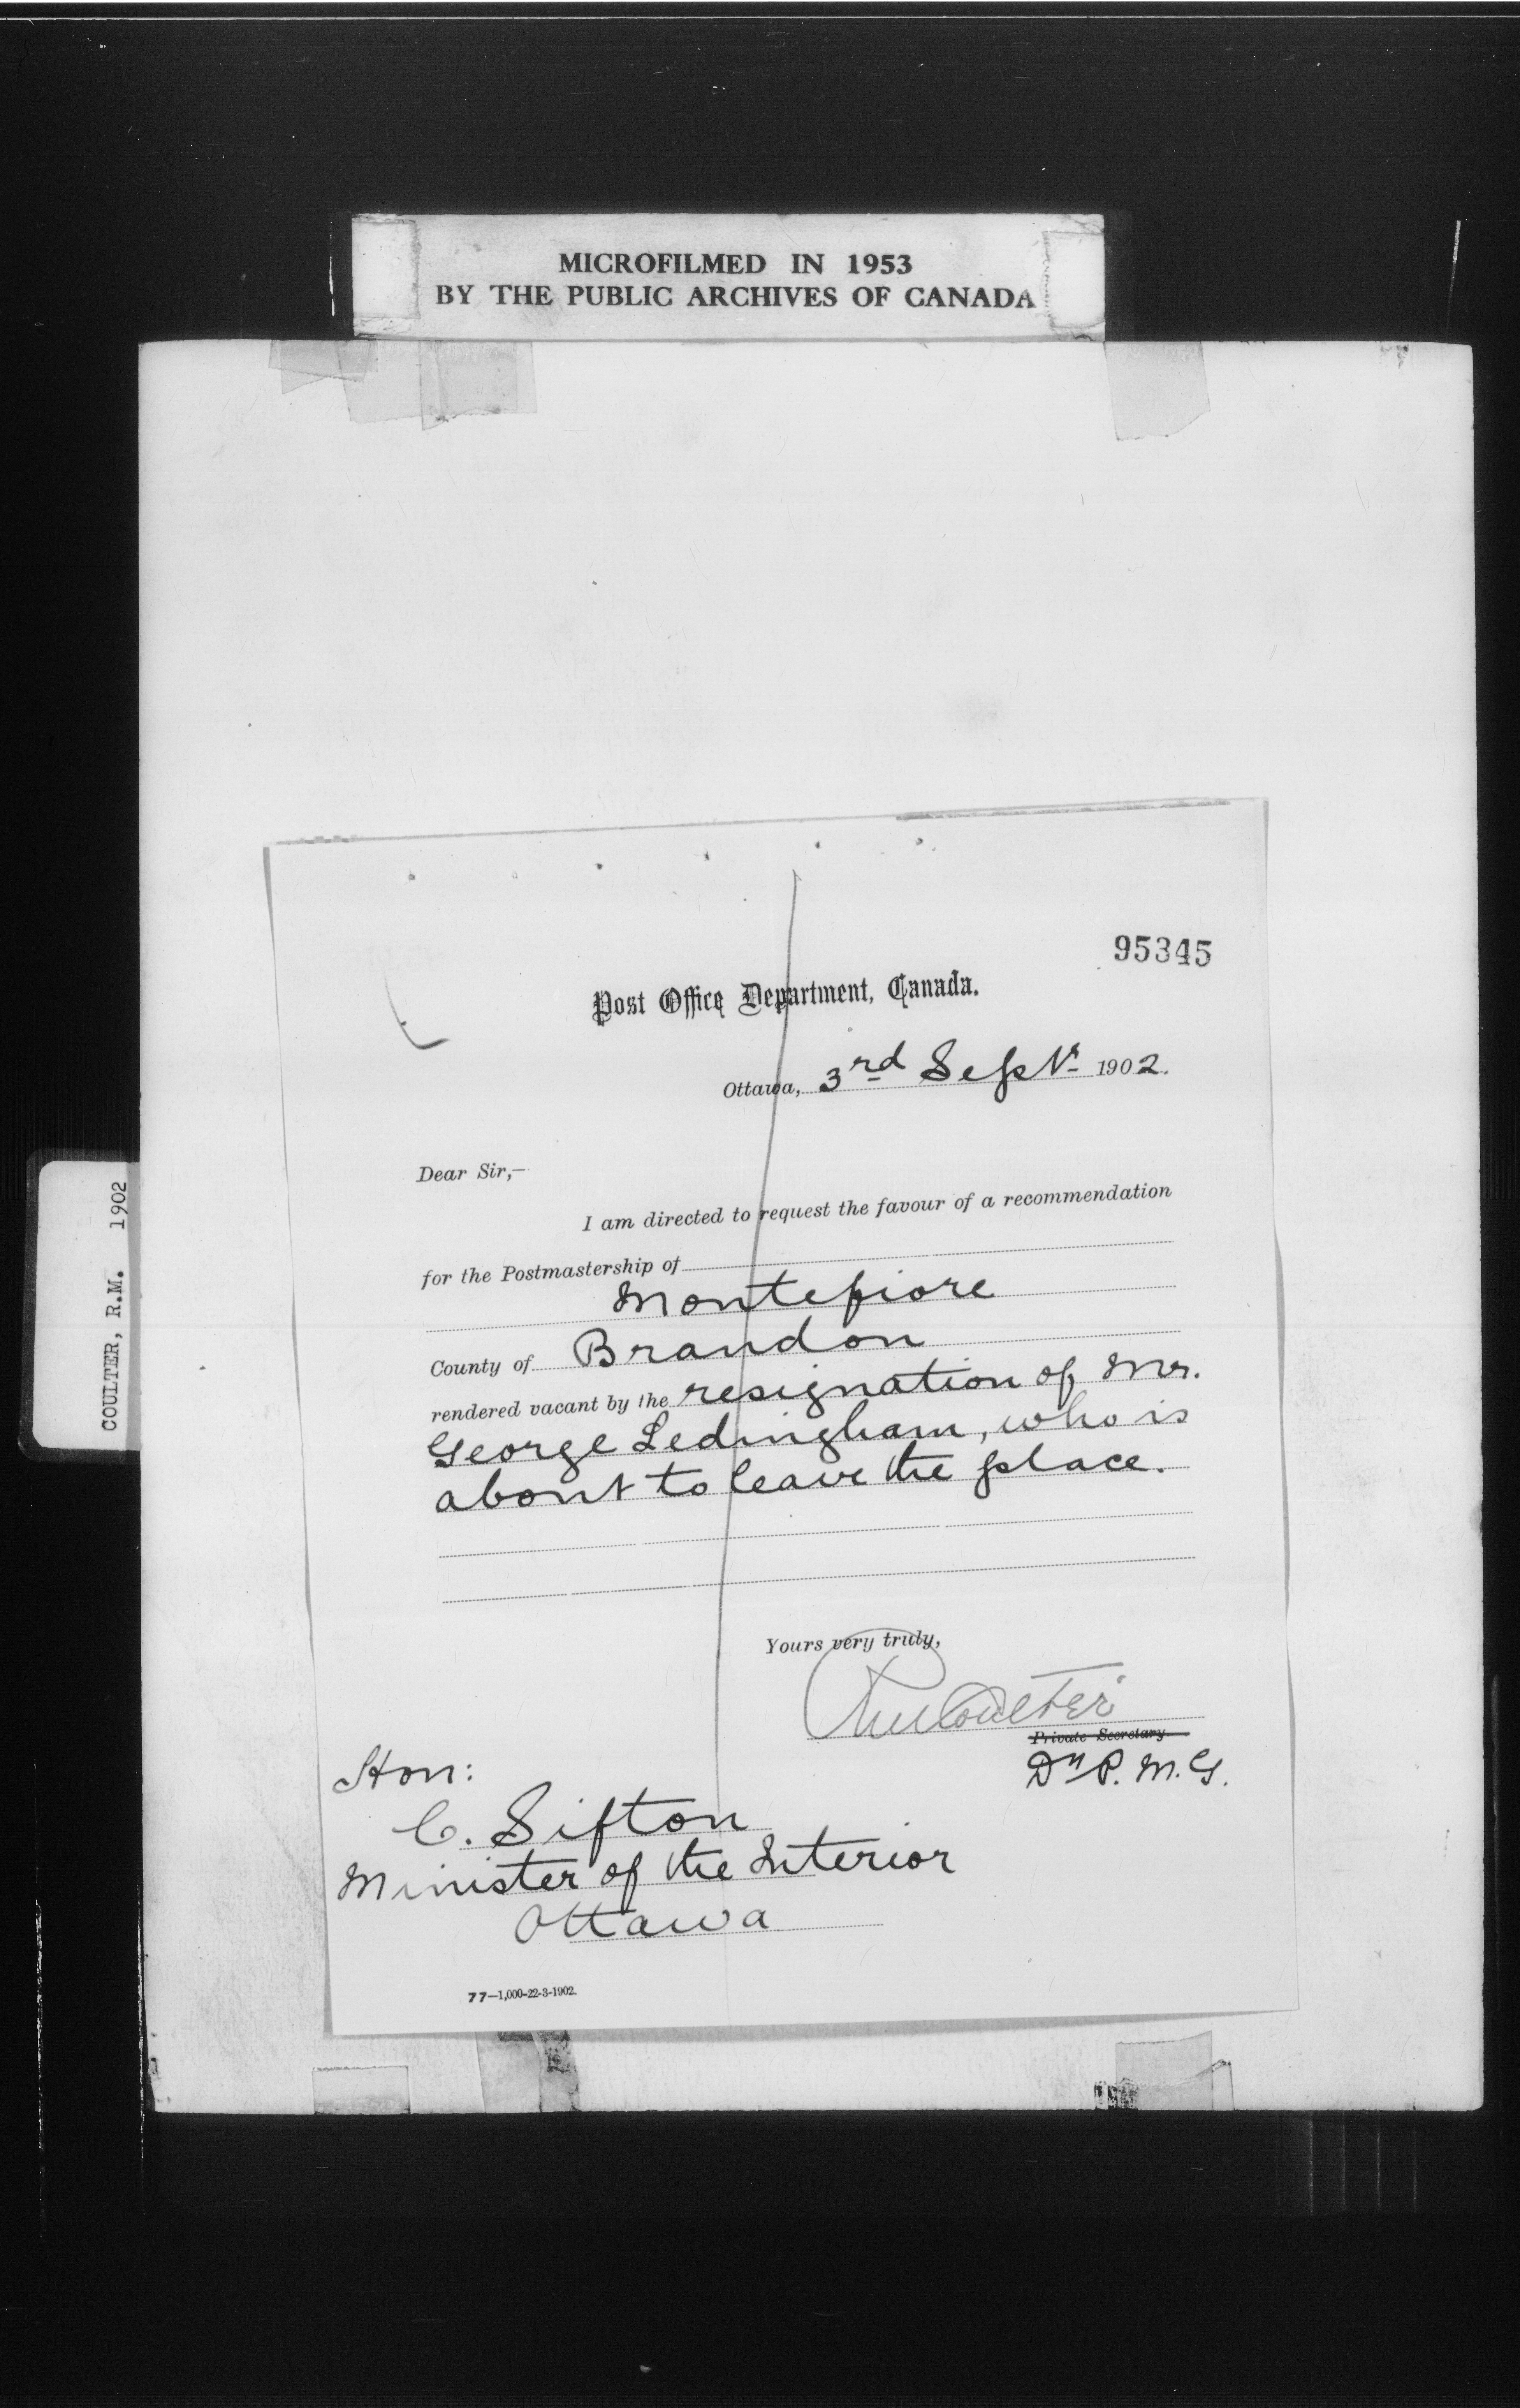 MICROFILMED IN 1953
BY THE PUBLIC ARCHIVES OF CANADA
COULTER, R.M. 1902
95345
Post Office Department, Canada.
Ottawa, 3rd Sept. 1902.
Dear Sir,—
I am directed to request the favour of a recommendation
for the Postmastership of
Montefiore
County of Brandon
rendered vacant by the resignation of Mr.
George Ledingham, who is
about to leave the place.
Yours very truly,
RMCoulter
Private Secretary
Dy P. M. G.
Hon:
C. Sifton
Minister of the Interior
Ottawa
77—1,000-22-3-1902.